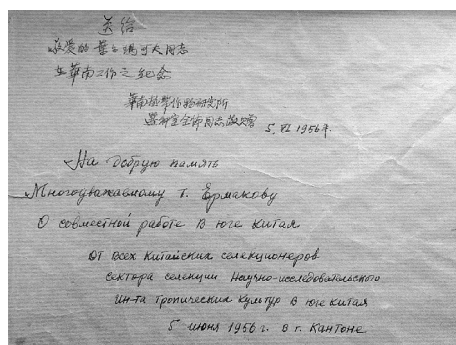 送给
敬爱的葉尔瑪可夫同志
在華南工作之紀念
華南热帶作物研究所
選种室全体同志敬贈 5. VI 1956年
На добрую память
Многоуважаемому т. Ермакову
О совместной работе в юге Китая
От всех китайских селекционеров
сектора селекции Научно-исследовательского
Ин-та тропических культур в юге Китая
5 июня 1956 г. в г. Кантоне